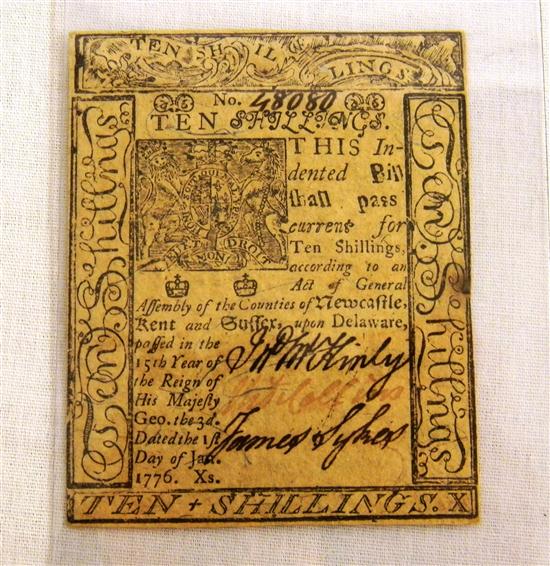 TEN SHILLINGS.
No. 48080
TEN SHILLINGS.
THIS In-
dented Bill
shall pass
current for
Ten Shillings,
according to an
Act of General
Assembly of the Counties of Newcastle,
Kent and Sussex, upon Delaware,
passed in the
15th Year of
the Reign of
His Majesty
Geo. the 3d.
Dated the 1st
Day of Jan.
1776. Xs.
Jno McKinly
James Sykes
Ten Shillings
Ten Shillings
DIEU ET MON DROIT
TEN + SHILLINGS. X